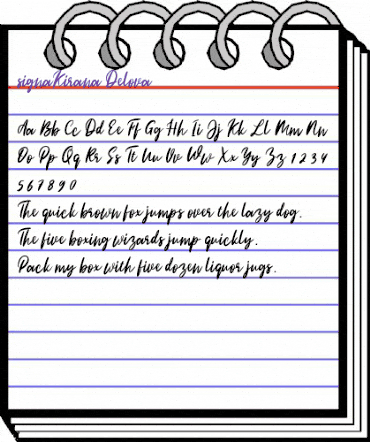 signaKirana Delova
Aa Bb Cc Dd Ee Ff Gg Hh Ii Jj Kk Ll Mm Nn
Oo Pp Qq Rr Ss Tt Uu Vv Ww Xx Yy Zz 1 2 3 4
5 6 7 8 9 0
The quick brown fox jumps over the lazy dog.
The five boxing wizards jump quickly.
Pack my box with five dozen liquor jugs.